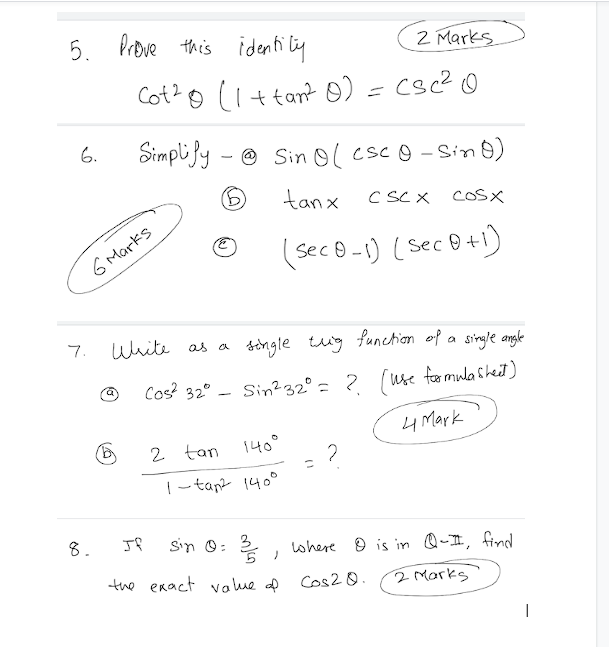 5. Prove this identity 2 Marks
Cot² θ (1 + tan² θ) = csc² θ
6. Simplify - ⓐ Sin θ( csc θ - Sin θ)
ⓑ tan x csc x cos x
ⓒ (sec θ -1) (sec θ +1)
6 Marks
7. Write as a single trig function of a single angle
ⓐ Cos² 32° - Sin² 32° = ?. (use formula sheet)
4 Mark
ⓑ 2 tan 140° / 1 - tan² 140° = ?
8. If sin θ = 3/5, where θ is in Q-II, find
the exact value of Cos 2θ. 2 Marks